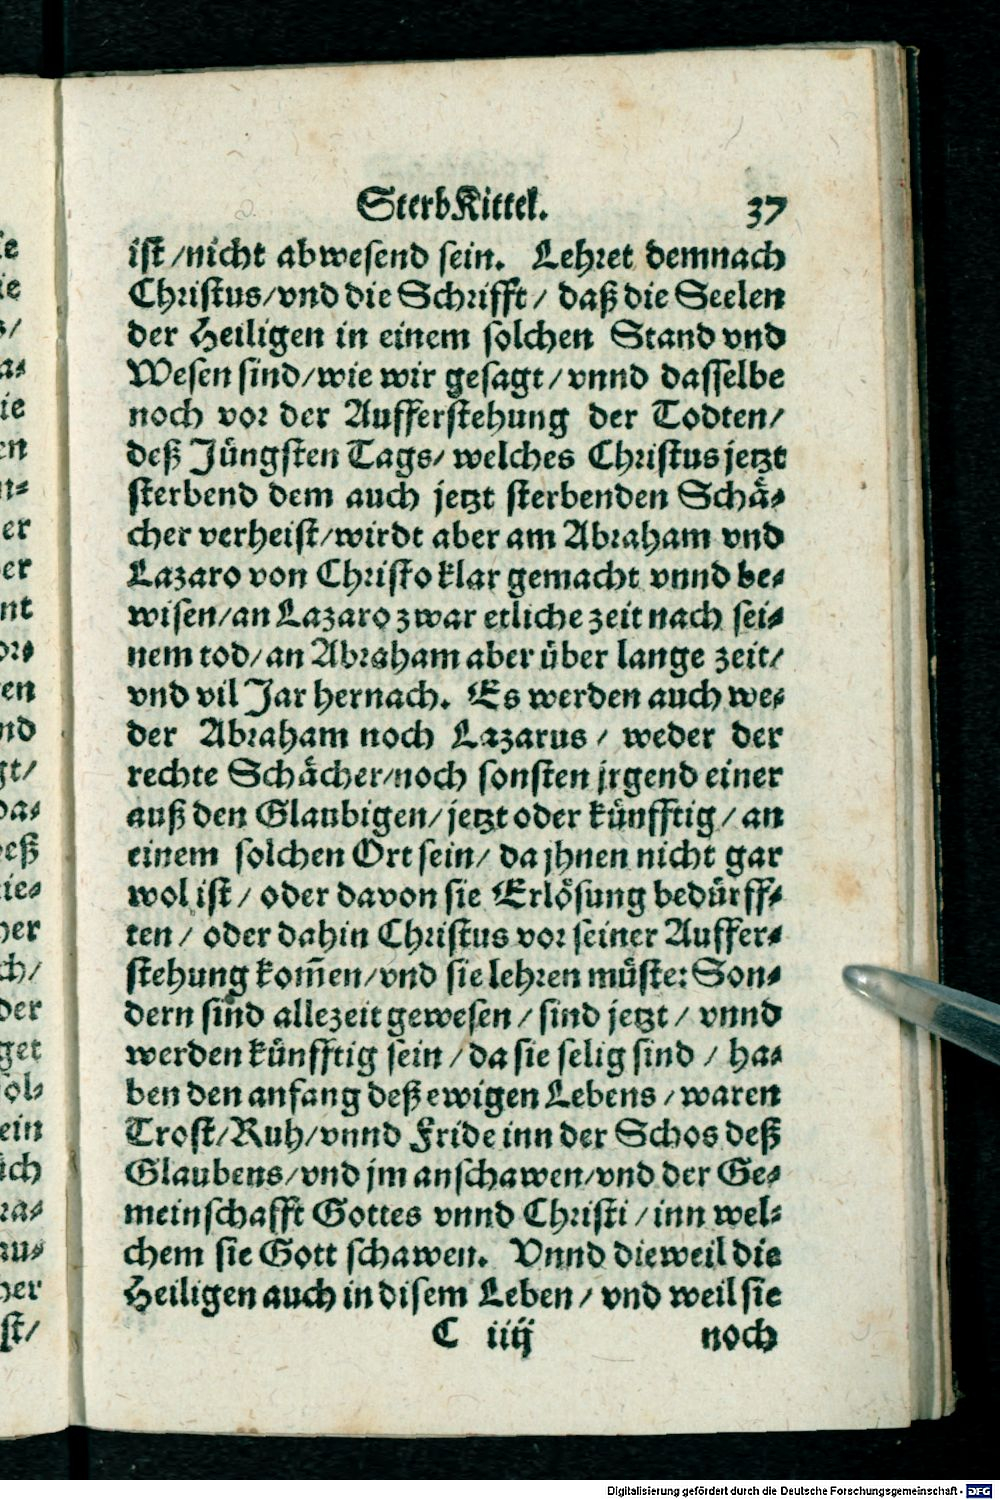 SterbKittel. 37
ist/nicht abwesend sein. Lehret demnach
Christus/vnd die Schrifft/ daß die Seelen
der Heiligen in einem solchen Stand vnd
Wesen sind/wie wir gesagt/vnnd dasselbe
noch vor der Aufferstehung der Todten/
deß Jüngsten Tags/ welches Christus jetzt
sterbend dem auch jetzt sterbenden Schä-
cher verheist/wirdt aber am Abraham vnd
Lazaro von Christo klar gemacht vnnd be-
wisen/an Lazaro zwar etliche zeit nach sei-
nem tod/an Abraham aber über lange zeit/
vnd vil Jar hernach. Es werden auch we-
der Abraham noch Lazarus / weder der
rechte Schächer/noch sonsten jrgend einer
auß den Glaubigen/jetzt oder künfftig/an
einem solchen Ort sein/ da jhnen nicht gar
wol ist / oder davon sie Erlösung bedürff-
ten / oder dahin Christus vor seiner Auffer-
stehung kom̃en/vnd sie lehren müste: Son-
dern sind allezeit gewesen / sind jetzt / vnnd
werden künfftig sein / da sie selig sind / ha-
ben den anfang deß ewigen Lebens / waren
Trost/Ruh/vnnd Fride inn der Schos deß
Glaubens/vnd jm anschawen/vnd der Ge-
meinschafft Gottes vnnd Christi / inn wel-
chem sie Gott schawen. Vnnd dieweil die
Heiligen auch in disem Leben / vnd weil sie
C iiij noch
Digitalisierung gefördert durch die Deutsche Forschungsgemeinschaft - DFG